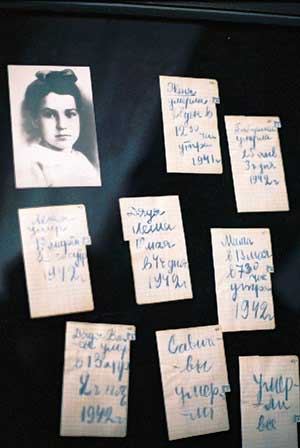 Женя
умерла
28 дек в
12 30 час
утра
1941 г
Бабушка
умерла
25 янв
3 ч дня
1942 г
Лека
умер
17 марта
в 5 час утр
1942 г
Дядя
Леша
10 мая
в 4 ч дня
1942 г
Мама
в 13 мая
в 7 30
час
утра
1942 г
Дядя Вася
умер
в 13 апр
2 ч ноч
1942 г
Савиче-
вы
умер-
ли
Умер-
ли
все